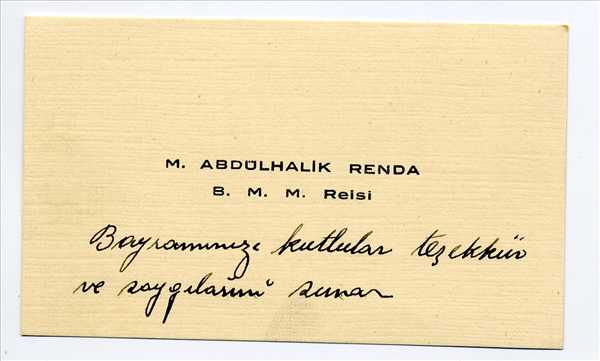 M. ABDÜLHALİK RENDA
B. M. M. Reisi
Bayramınızı kutlular teşekkür
ve saygılarını sunar